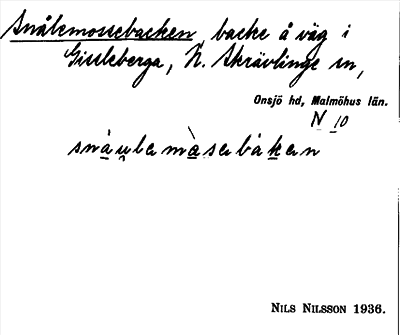 Snålemossebacken, backe å väg i
Gissleberga, N. Skrävlinge sn,
Onsjö hd, Malmöhus län.
N 10
snàu̯lɐmàsɐbàkɐn
NILS NILSSON 1936.